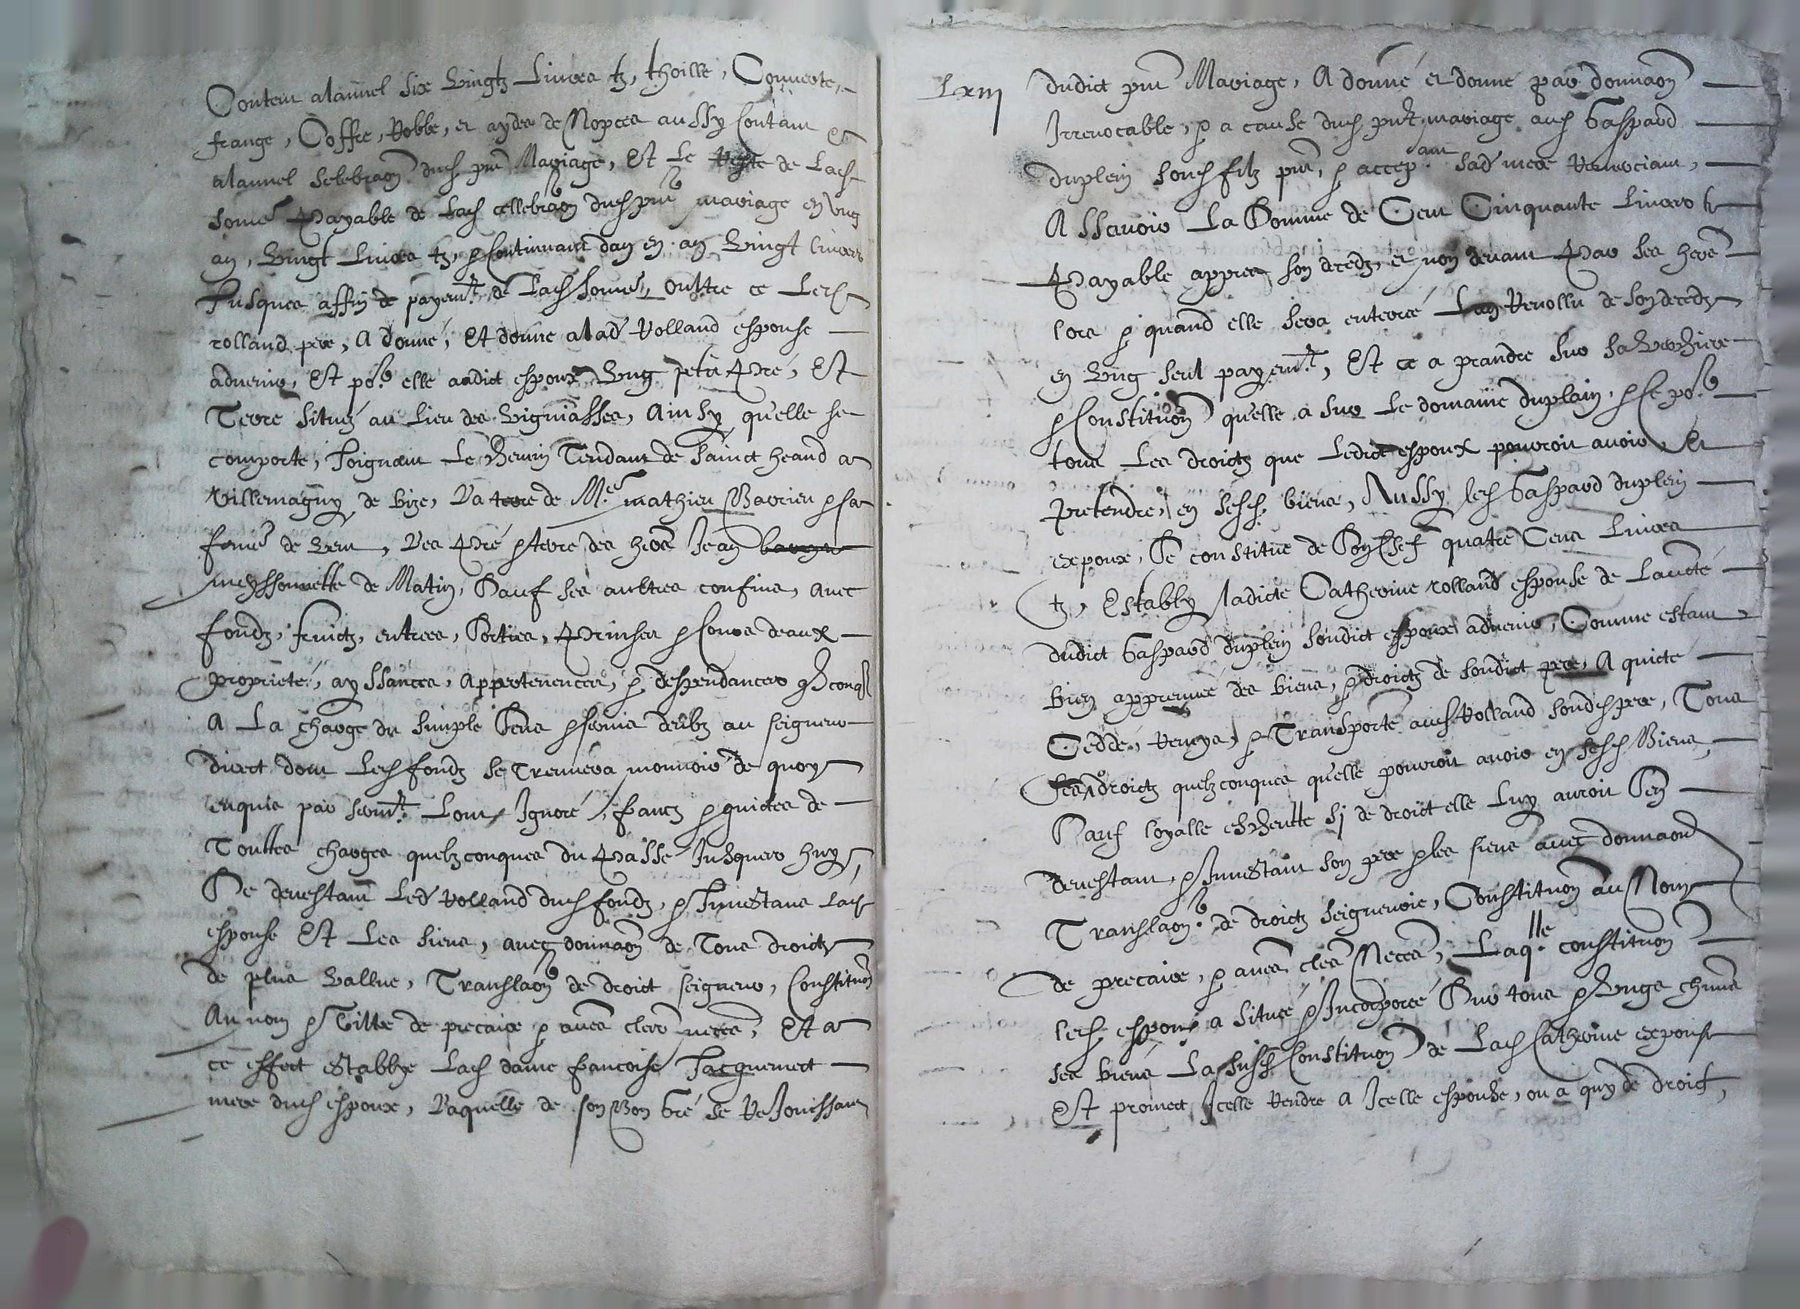 Contem alannel six vingtz Livres tz, thoille, Couverte,
frange, Coffre, Robbe, et aydes de Nopces aussy Contant
alannel celebraon dud pnt Mariage, Et Le reste de Lad
some payable de Lad cellebraon dud pnt mariage en ung
an, Vingt Livres tz, et Continuant dan en an Vingt livres
Jusques affin de payemt de Lad some, outtre ce Led
rolland pere, A donné, Et donne alad Rolland espouse
advenir, Et por elle audict espoux, Ung petit Pré, Et
Terre situez au Lieu des Vigniasses, Ainsy qu'elle se
comporte, Joignant Le Chemin Tendant de Sainct heand a
Villemagny de bize, La terre de Mre mathieu Barrieu et sa
fame de vent, Les Pré et terre des hers Jean
meyssonnette de Matin, Sauf ses aultres confins, avec
fondz, fruictz, entrees, Sorties, Prinses et Cours deaux
proprieté, ayssances, appertenences, et despendances qzconqs
A La charge du simple Cens et servis deubz au seigneur
direct dont Lesd fondz se Treuvera mouvoir de quoy
enquis par sermt Lont Ignoré, francz et quictes de
Touttes charges quelzconques du Passé Jusques huy,
Se devestant Led Rolland dud fondz, et Investant Lad
espouse Et Les siens, avec donnaon de Tous droictz
de plus Vallue, Translaon de droict seigneur, Constituon
Au nom et Tiltre de precaire et aues clers neces, Et a
ce effect establye Lad dame francoise Jacquemect
mere dud espoux, Laquelle de son Bon Gré se Rejouissant
Lxiii
dudict pnt Mariage, A donné et donne par donnaon
Irrevocable, et a cause dud pnt mariage aud Gaspard
duplein sond filz pnt, et accepant sad mere Remerciant,
Assavoir La Somme de Cent Cinquante Livres tz
Payable appres son decedz, et non devant Par ses heres
lors et quand elle sera enterée Lan Revollu de son decedz
en Ung seul payemt, Et ce a prandre sur sa Verchiere
et Constituon qu'elle a sur Le domaine duplain, et ce por
tous Les droictz que Ledict espoux pourroit avoir Et
pretendre, en sesd biens, Aussy led Gaspard duplein
espoux, Se constitue de Soy Chef quatre Cens Livres
tz, Establye ladicte Catherine rolland espouse de Lauctte
dudict Gaspard duplein sondict espoux advenir, Comme estant
bien appreuvée des biens, et droictz de sondict pere, A quicté
Ceddé, Remys, et Transporté aud Rolland sond pere, Tous
droictz quelzconques qu'elle pourroit avoir en sesd Biens,
Sauf loyalle escheutte si de droict elle Luy avoit Sen
devestant, et Investant son pere et les siens avec donnaon
Translaon de droictz seigneurie, Constituon au Nom
de precaire, et aues cles Neces, Laqlle constituon
led espoux a situeé et Incorporeé Sur tous et Ungs chuns
ses biens La susd Constituon de Lad Catherine espouse
Et promect Icelle Rendre a Icelle espouse, ou a quy de droict,